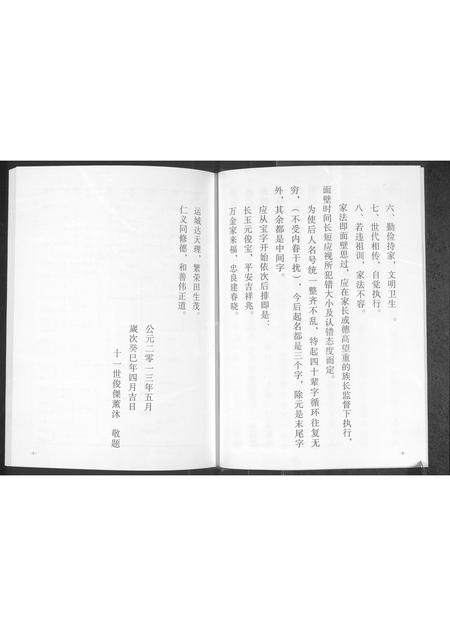 六、勤俭持家，文明卫生。
七、世代相传，自觉执行。
八、若违祖训，家法不容。
家法即面壁思过，应在家长或德高望重的族长监督下执行，
面壁时间长短应视所犯错大小及认错态度而定。
为使后人名号统一整齐不乱，待起四十辈字循环往复无
穷，（不受内眷干扰），今后起名都是三个字，除元是末尾字
外，其余都是中间字。
应从宝字开始依次后排即是：
长玉元俊宝，平安吉祥兆。
万金家来福，忠良建春晓。
运城达天理，繁荣田生茂。
仁义同修德，和善伟正道。
公元二零一三年五月
歲次癸巳年四月吉日
十一世俊傑薰沐 敬题